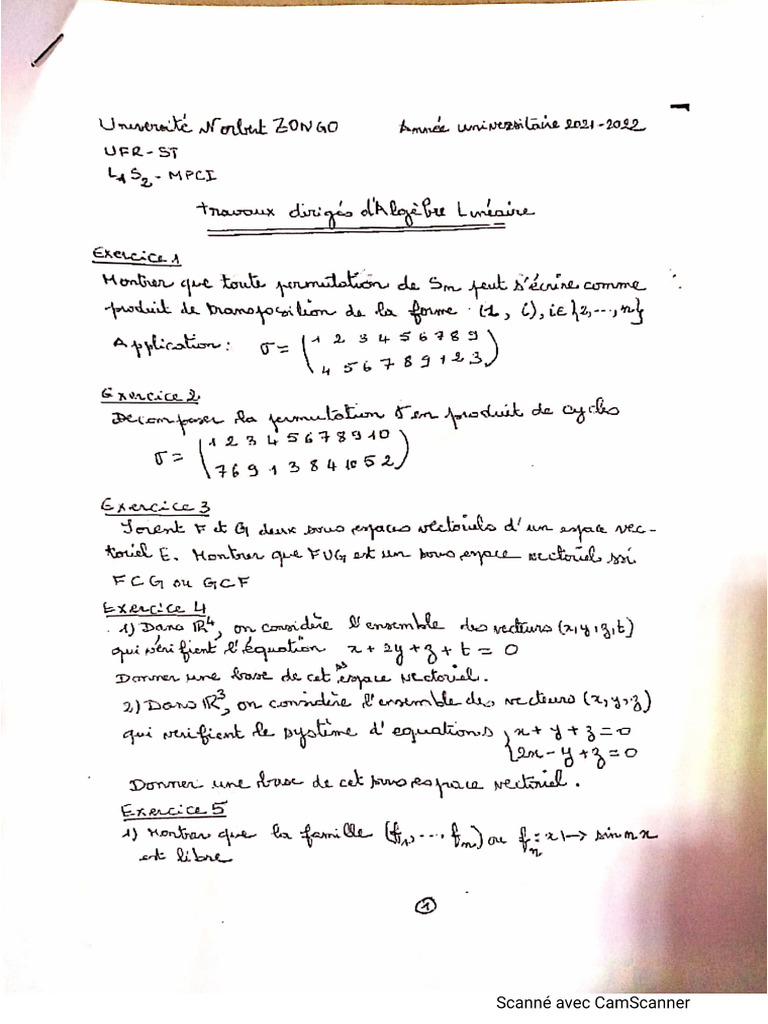 Université Norbert ZONGO Année universitaire 2021-2022
UFR-ST
L1 S2 - MPCI
Travaux dirigés d'Algèbre Linéaire
Exercice 1
Montrer que toute permutation de Sn peut s'écrire comme
produit de transposition de la forme (1, i), i∈{2,...,n}
Application : σ = (1 2 3 4 5 6 7 8 9
4 5 6 7 8 9 1 2 3)
Exercice 2
Décomposer la permutation σ en produit de cycles
σ = (1 2 3 4 5 6 7 8 9 10
7 6 9 1 3 8 4 10 5 2)
Exercice 3
Soient F et G deux sous espaces vectoriels d'un espace vec-
toriel E. Montrer que F∪G est un sous espace vectoriel ssi
F⊂G ou G⊂F
Exercice 4
1) Dans ℝ⁴, on considère l'ensemble des vecteurs (x,y,z,t)
qui vérifient l'équation x + 2y + z + t = 0
Donner une base de cet ss espace vectoriel.
2) Dans ℝ³, on considère l'ensemble des vecteurs (x,y,z)
qui verifient le système d'equations {x + y + z = 0
2x - y + z = 0
Donner une base de cet sous espace vectoriel.
Exercice 5
1) Montrer que la famille (f1,..., fn) ou fn : x ↦ sin nx
est libre
1
Scanné avec CamScanner